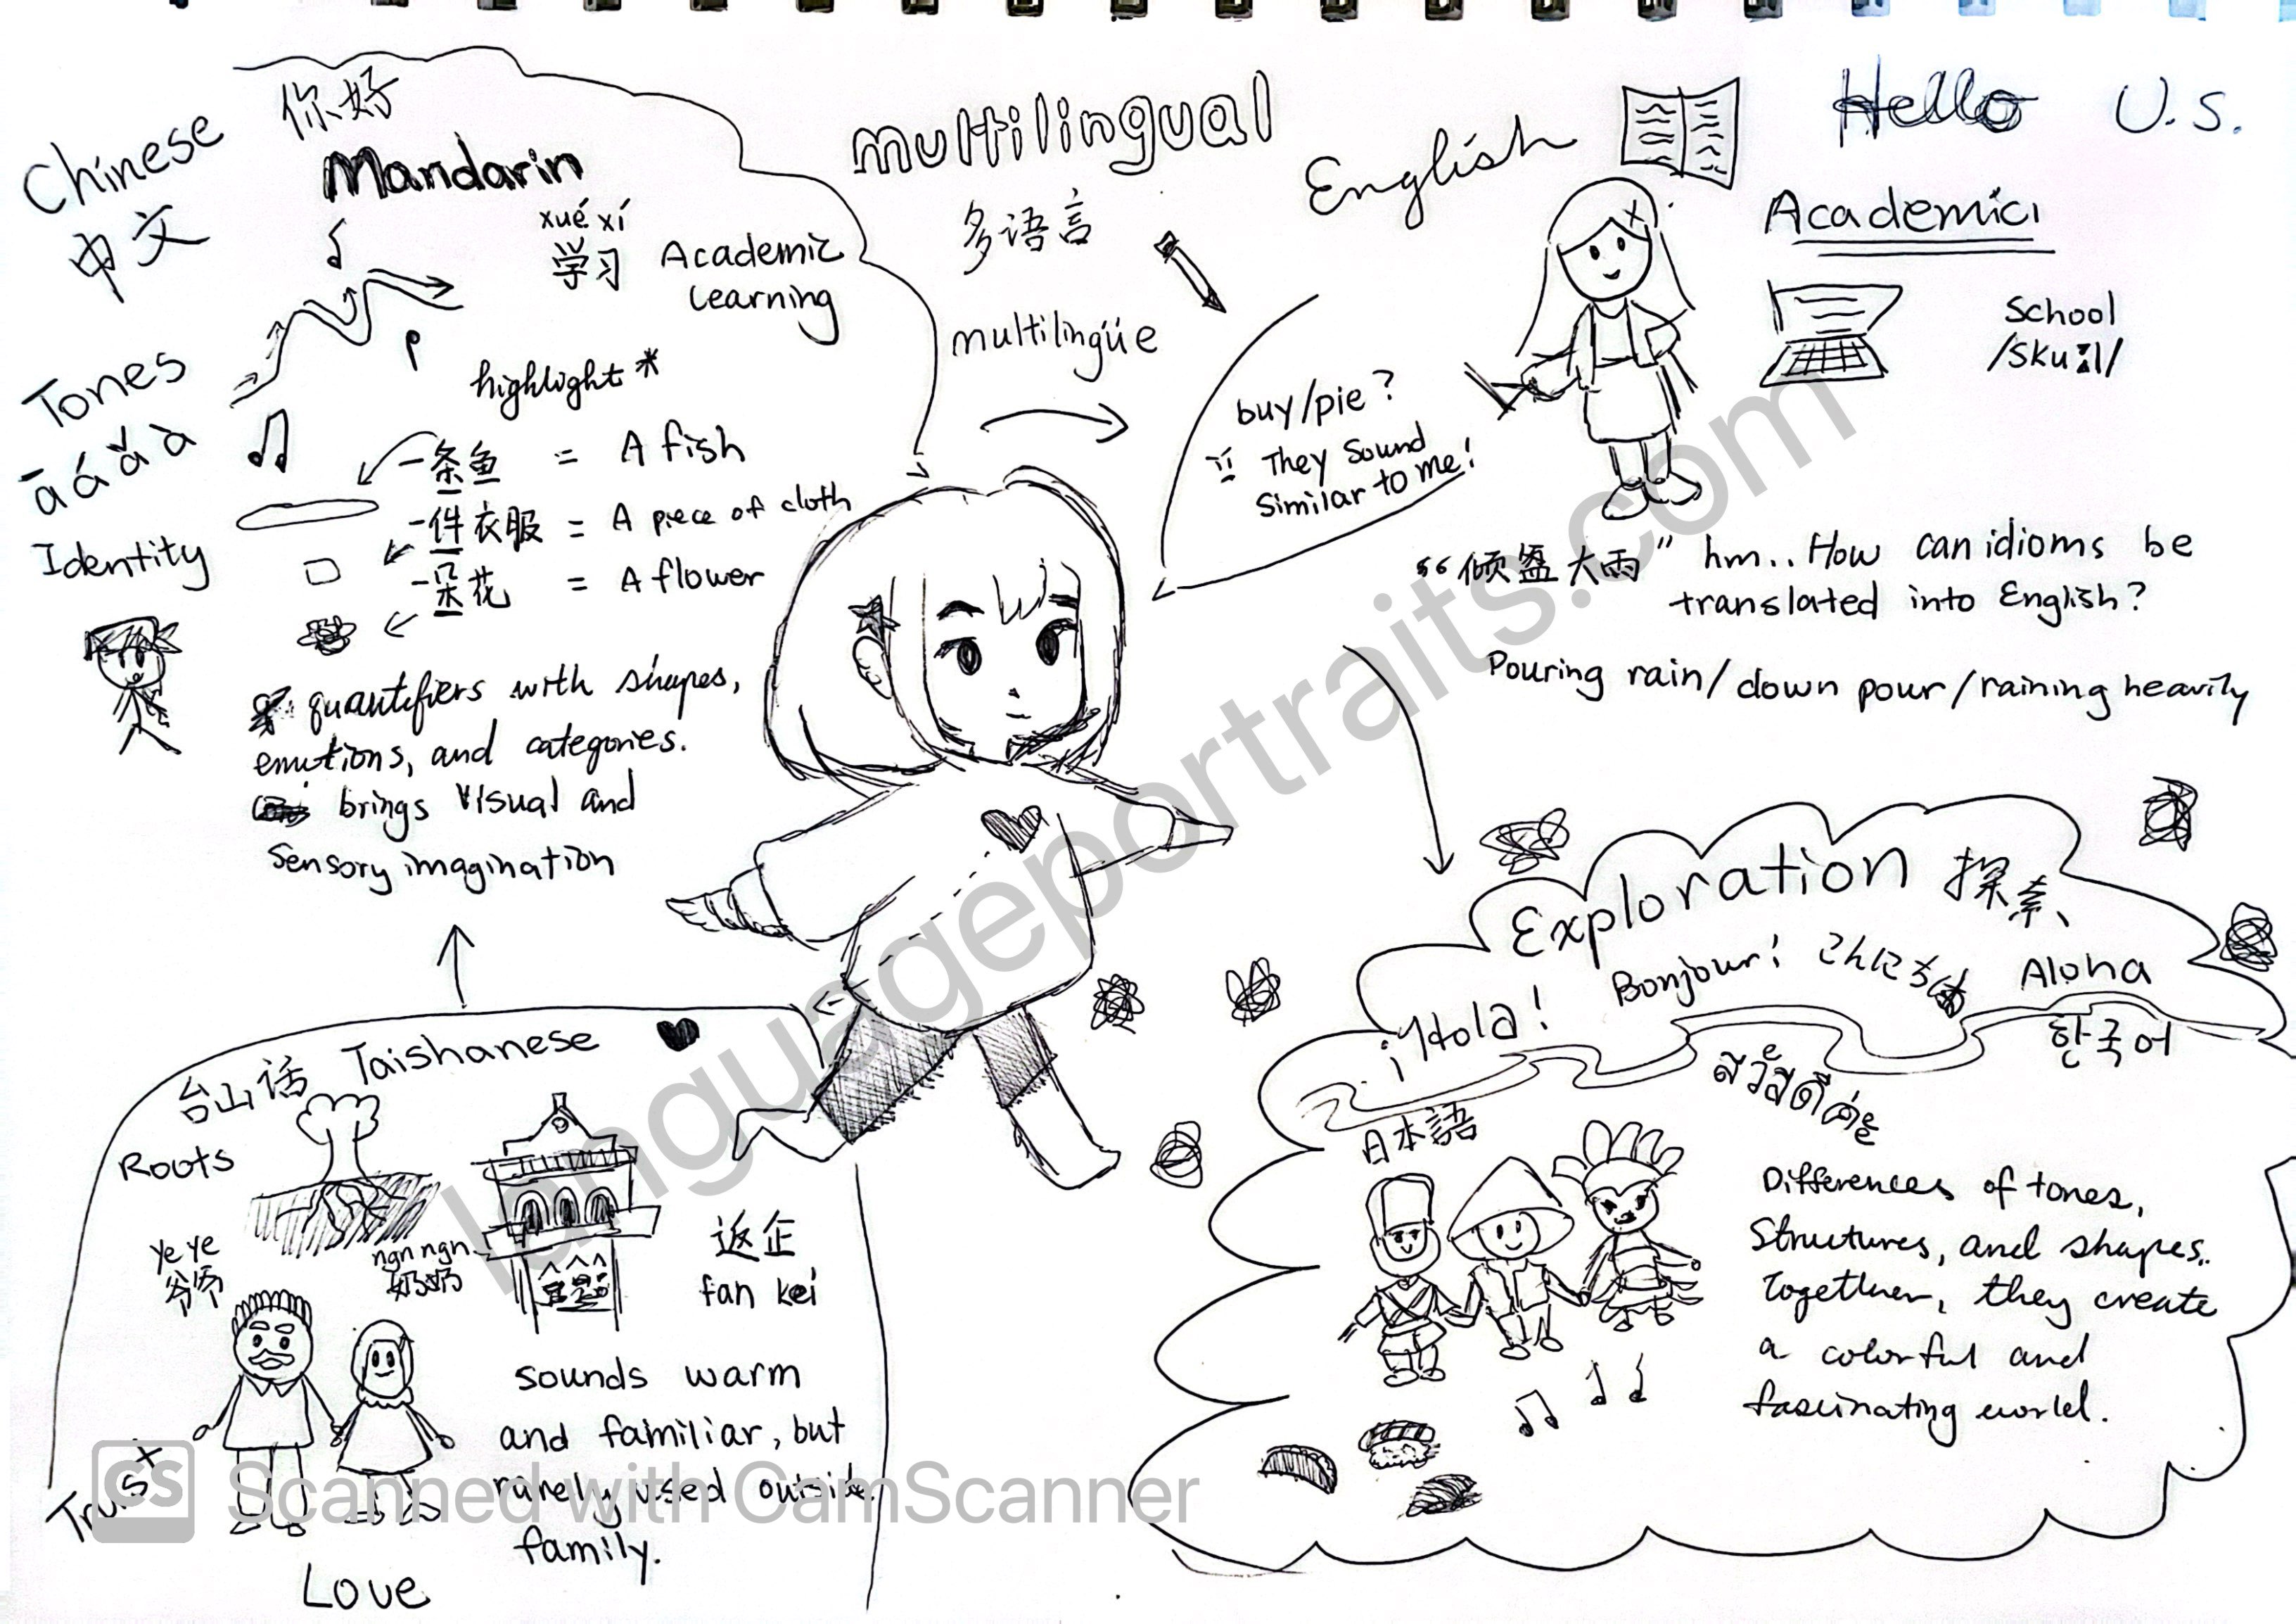 Chinese
中文
你好
Mandarin
xué xí
学习 Academic
Learning
Tones
ā á ǎ à
highlight*
一条鱼 = A fish
一件衣服 = A piece of cloth
一朵花 = A flower
Identity
quantifiers with shapes,
emotions, and categories.
brings visual and
sensory imagination
multilingual
多语言
multilingüe
English
Hello U.S.
Academic
School
/skuːl/
buy/pie?
They sound
similar to me!
“倾盆大雨” hm.. How can idioms be
translated into English?
Pouring rain/down pour/raining heavily
台山话 Taishanese
Roots
ye ye
爷爷
ngn ngn
奶奶
返企
fan kei
sounds warm
and familiar, but
rarely used outside
family.
Trust
Love
Exploration 探索
¡Hola! Bonjour! こんにちは Aloha
한국어
สวัสดีค่ะ
日本語
Differences of tones,
structures, and shapes.
Together, they create
a colorful and
fascinating world.
languageportraits.com
CS Scanned with CamScanner